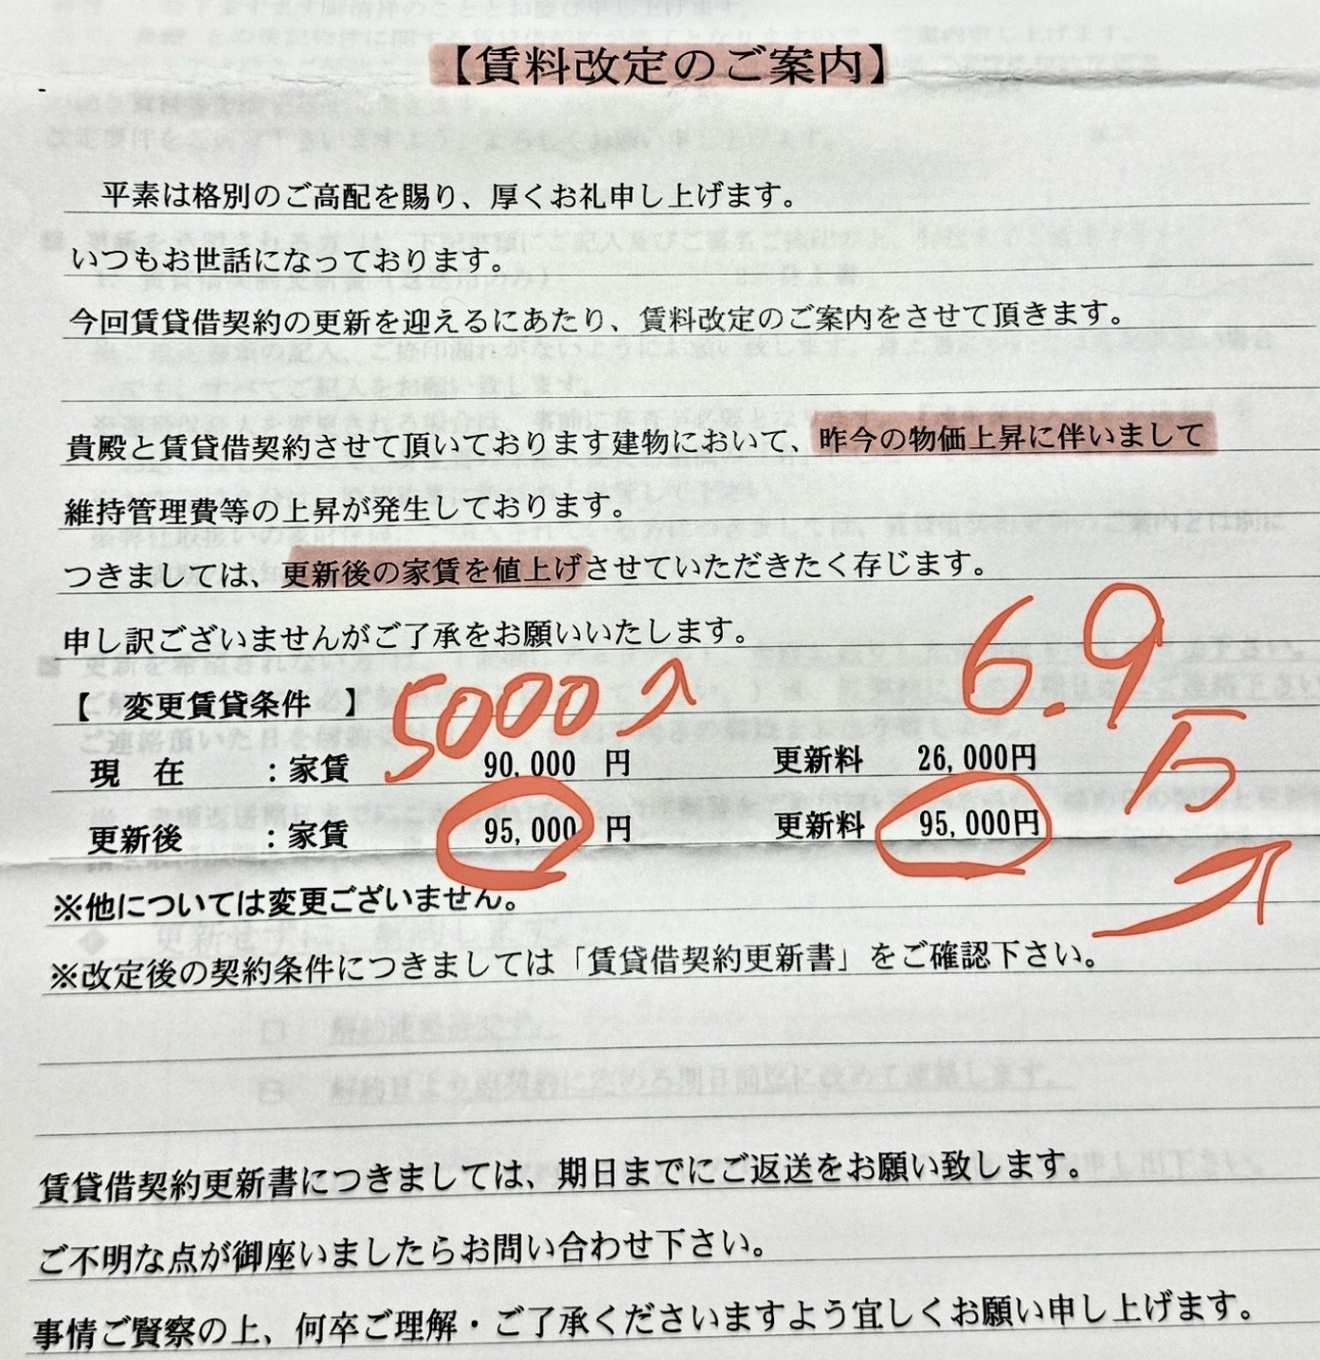 【賃料改定のご案内】
平素は格別のご高配を賜り、厚くお礼申し上げます。
いつもお世話になっております。
今回賃貸借契約の更新を迎えるにあたり、賃料改定のご案内をさせて頂きます。
貴殿と賃貸借契約させて頂いております建物において、昨今の物価上昇に伴いまして
維持管理費等の上昇が発生しております。
つきましては、更新後の家賃を値上げさせていただきたく存じます。
申し訳ございませんがご了承をお願いいたします。
6.9万
【 変更賃貸条件 】 5000↗
現 在 :家賃 90,000 円 更新料 26,000円
更新後 :家賃 95,000 円 更新料 95,000円
※他については変更ございません。
※改定後の契約条件につきましては「賃貸借契約更新書」をご確認下さい。
賃貸借契約更新書につきましては、期日までにご返送をお願い致します。
ご不明な点が御座いましたらお問い合わせ下さい。
事情ご賢察の上、何卒ご理解・ご了承くださいますよう宜しくお願い申し上げます。